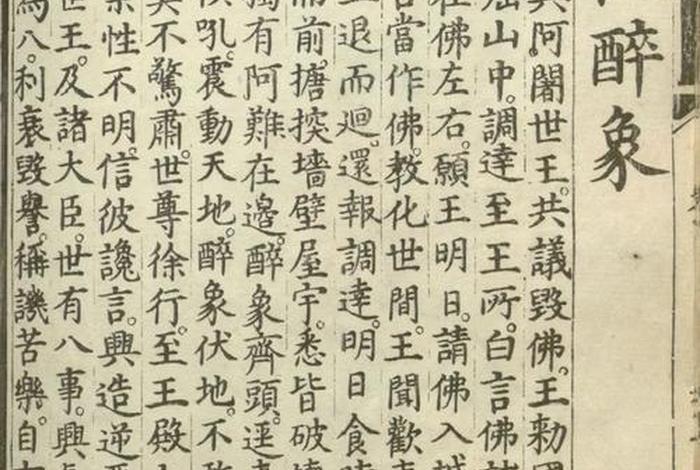 醉象
阿闍世王。共議毀佛。王勅
崛山中。調達至王所。白言佛
在佛左右。願王明日。請佛入城
當作佛。教化世間。王聞歡
退而迴。還報調達。明日食
而前。搪揬墻壁屋宇。悉皆破
獨有阿難在邊。醉象齊頭。逕
吼。震動天地。醉象伏地。不
莫不驚肅。世尊徐行。至王殿
性不明。信彼讒言。興造逆
世王。及諸大臣。世有八事。興
為八。利衰毀譽。稱譏苦樂。自